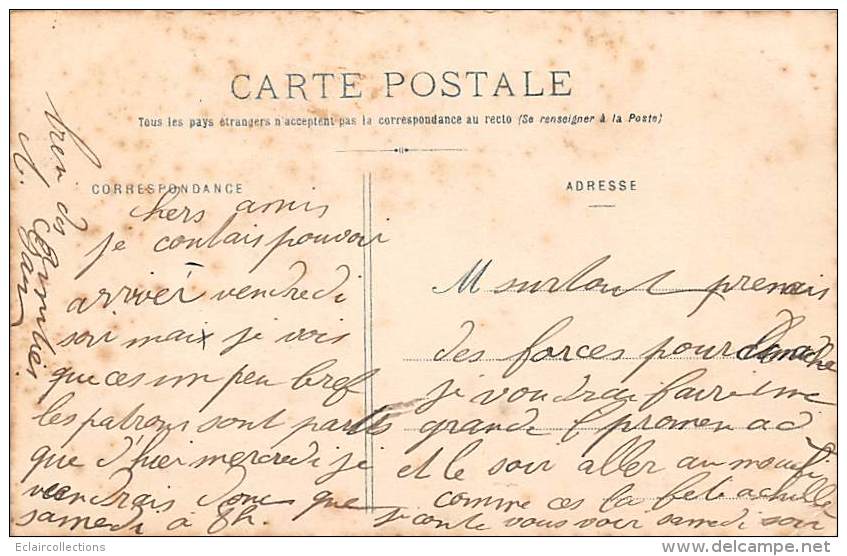 CARTE POSTALE
Tous les pays étrangers n'acceptent pas la correspondance au recto (Se renseigner à la Poste)
CORRESPONDANCE
ADRESSE
chers amis
je contais pouvoir
arriver vendredi
soir maix je vois
que ces un peu bref
les patrons sont partis
que d'hier mercredi je
viendrais donc que
samedi à 8h.
M surtout prenais
des forces pour dimache
je voudrai faire une
grande promenad
et le soir aller au
comme ces la fete a
je conte vous voir samedi soir
bien du
A.
Eclaircollections
delcampe.net